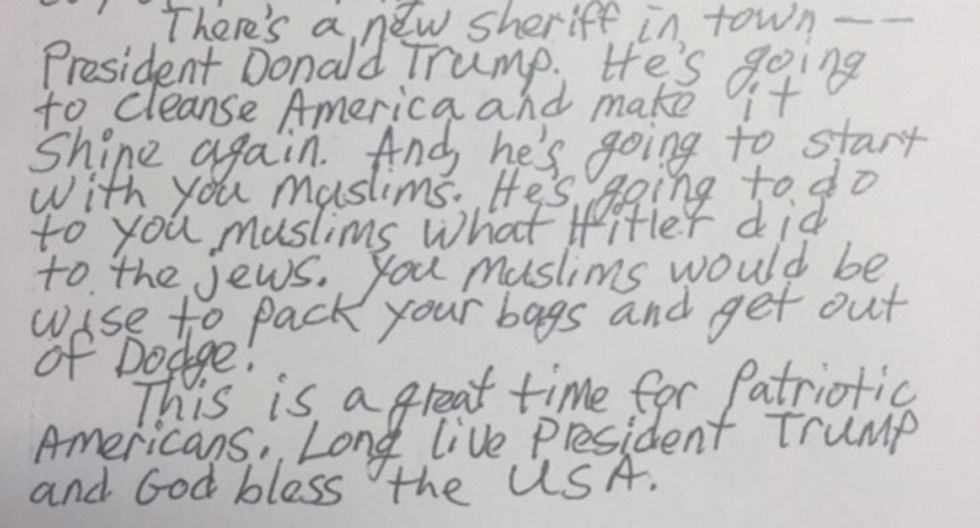 There's a new sheriff in town --
President Donald Trump. He's going
to cleanse America and make it
Shine again. And, he's going to start
with you muslims. He's going to do
to you muslims what Hitler did
to the jews. You muslims would be
wise to pack your bags and get out
of Dodge.
This is a great time for Patriotic
Americans. Long live President Trump
and God bless the USA.